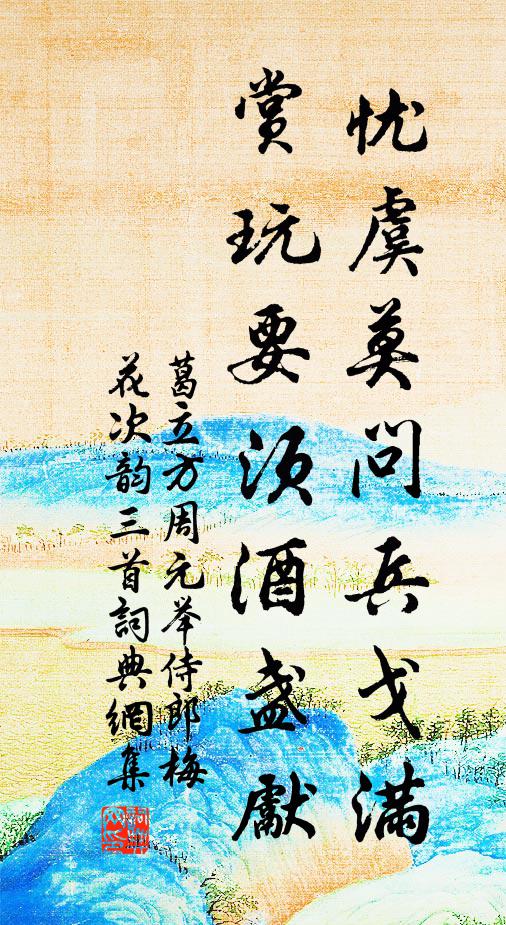 忧虞莫问兵戈满
赏玩要须酒盏献
葛立方周元举侍郎梅
花次韵三首词典网集